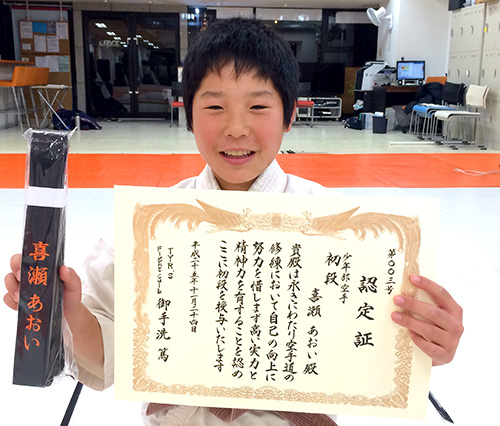 喜瀬 あおい
第〇〇三号
認定証
少年部空手
初段
喜瀬 あおい 殿
貴殿は永きにわたり空手道の
修練において自己の向上に
努力を惜しまず高い実力と
精神力を有することを認め
ここに初段を授与いたします
平成二十五年十一月二十四日
TYR'S
Fight CLUB
御手洗 篤